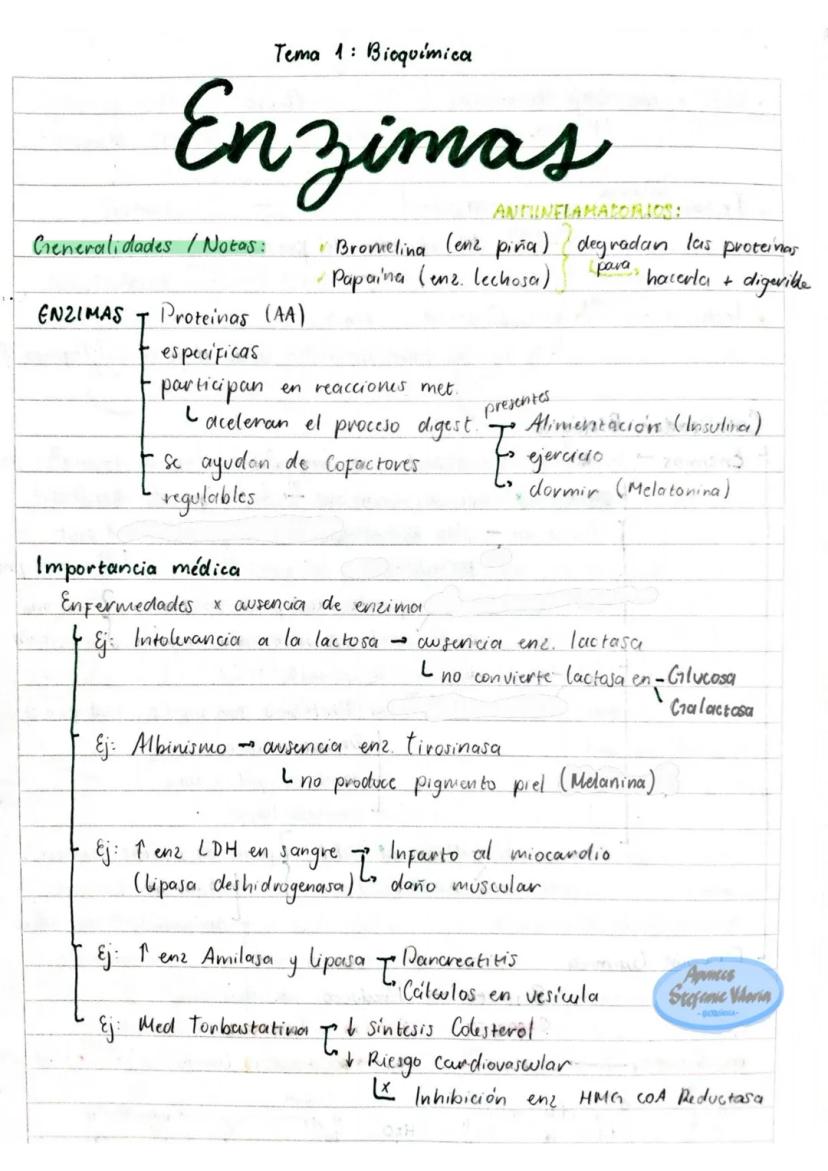 Tema 1: Bioquímica
Enzimas
ANTIINFLAMATORIOS:
Generalidades / Notas: ✓ Bromelina (enz piña) degradan las proteínas
✓ Papaína (enz. lechosa) para hacerla + digerible
ENZIMAS Proteínas (AA)
específicas
participan en reacciones met.
aceleran el proceso digest. presentes → Alimentación (Insulina)
→ ejercicio
Se ayudan de Cofactores
→ dormir (Melatonina)
regulables
Importancia médica
Enfermedades x ausencia de enzima
Ej: Intolerancia a la lactosa → ausencia enz. lactasa
no convierte lactosa en - Glucosa
Galactosa
Ej: Albinismo → ausencia enz. tirosinasa
no produce pigmento piel (Melanina)
Ej: ↑ enz LDH en sangre → Infarto al miocardio
(Lipasa deshidrogenasa) → daño muscular
Ej: ↑ enz Amilasa y Lipasa → Pancreatitis
Cálculos en vesícula
Ej: Med Torbastatina → ↓ síntesis Colesterol
↓ Riesgo cardiovascular
x Inhibición enz HMG COA Reductasa
Apuntes
Stefanie Viloria